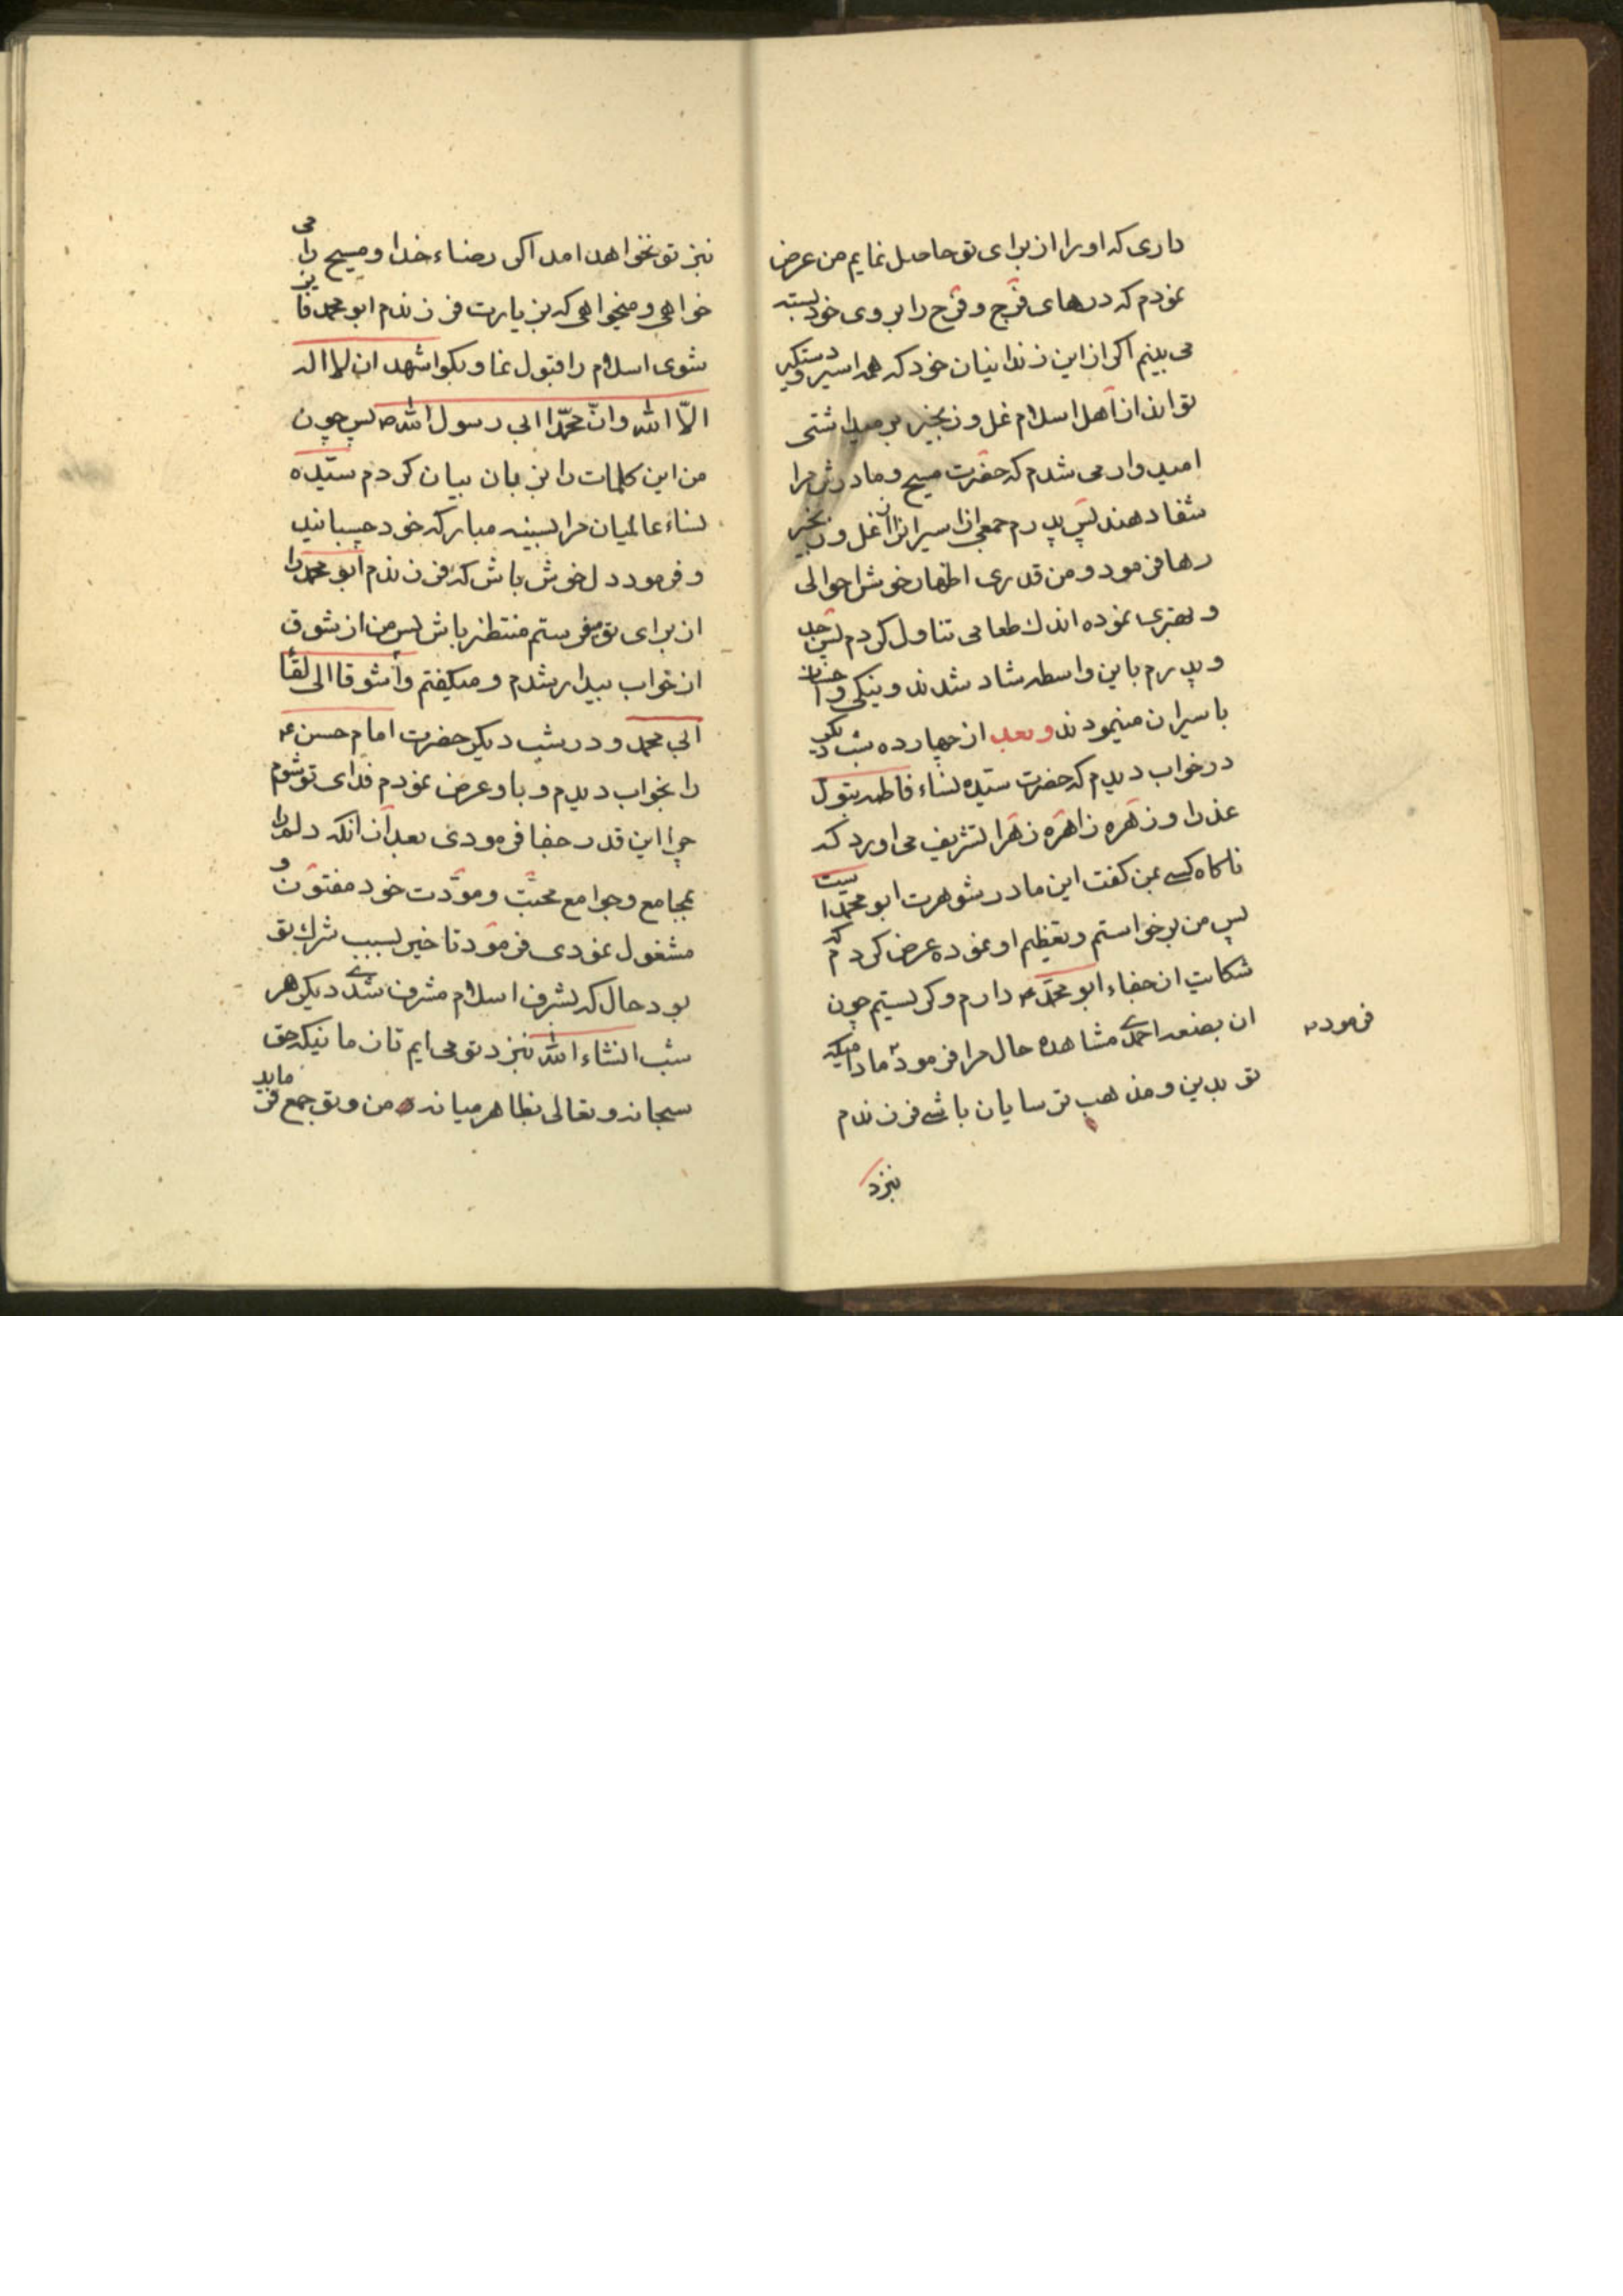 داری که او را از برای تو حاصل نمایم من عرض
نمودم که درهای فرج و فرح را بروی خود بسته
می بینم اکر از این زندانیان خود که همه اسیر و دستکیر
تواند از اهل اسلام غل و زنجیر بر میداشتی
امیدوار می شدم که حضرت مسیح و مادرش مرا
شفا دهند پس پدرم جمعی از اسیرانرا از غل و زنجیر
رها فرمود و من قدری اظهار خوش احوالی
و بهتری نموده اندك طعامی تناول کردم پس جد
و پدرم باین واسطه شاد شدند و نیکی و احسان
باسیران مینمودند و بعد از چهارده شب دیکر
در خواب دیدم که حضرت سیده نساء فاطمه بتول
عذرا و زهره زاهره زهرا تشریف می اورد که
ناکاه کسی بمن کفت این مادر شوهرت ابو محمد است
پس من برخواستم و تعظیم او نموده عرض کردم که
شکایت از جفاء ابو محمد ع دارم و کریستیم چون
ان بضعه احمدی مشاهده حال مرا فرمود مادامیکه
فرمود
تو بدین و مذهب ترسایان باشی فرزندم
نزد
نزد تو نخواهد امد اکر رضاء خدا و مسیح را می
خواهی و میخواهی که بزیارت فرزندم ابو محمد فایز
شوی اسلام را قبول نما و بکو اشهد ان لا اله
الّا الله وانّ محمّدا ابی رسول الله ص پس چون
من این کلمات را بزبان بیان کردم سیّده
نساء عالمیان مرا بسینه مبارکه خود چسبانید
و فرمود دل خوش باش که فرزندم ابو محمد را
از برای تو میفرستم منتظر باش پس من از شوق
از خواب بیدار شدم و میکفتم وا شوقا الی لقاء
ابی محمد و در شب دیکر حضرت امام حسن ع
را بخواب دیدم و باو عرض نمودم فدای تو شوم
چرا این قدر جفا فرمودی بعد از انکه دلم را
بمجامع و جوامع محبّت و مودّت خود مفتون و
مشغول نمودی فرمود تاخیر بسبب شرك تو
بود حال که بشرف اسلام مشرف شدی دیکر هر
شب انشاء الله نزد تو می ایم تا زمانیکه حق
سبحانه و تعالی بظاهر میانه من و تو جمع فرماید